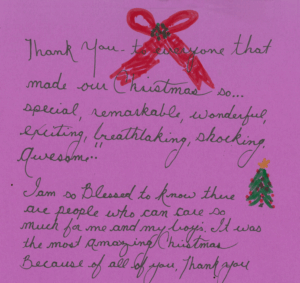 Thank You - to everyone that
made our Christmas so...
special, remarkable, wonderful,
exciting, breathtaking, shocking,
Awesome!!
I am so Blessed to know there
are people who can care so
much for me and my boys. It was
the most amazing Christmas
Because of all of you. Thank you